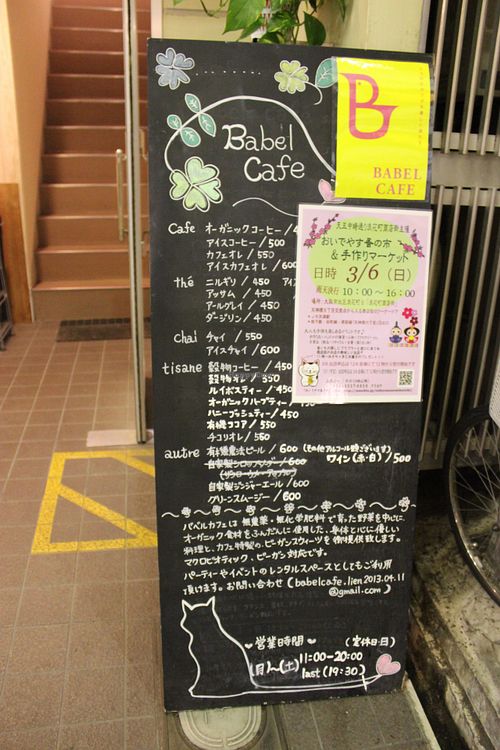 Babel
Cafe
B
BABEL
CAFE
天五中崎通り浪花町蚤の市
おいでやす蚤の市
&手作りマーケット
日時 3/6 (日)
雨天決行 10:00～16:00
Cafe オーガニックコーヒー/4
アイスコーヒー/500
カフェオレ/550
アイスカフェオレ/600
thé ニルギリ/450 アイ
アッサム/450
アールグレイ/450
ダージリン/450
chai チャイ/550
アイスチャイ/600
tisane 穀物コーヒー/450
穀物オレ/550
ルイボスティー/450
オーガニックハーブティー
ハニーブッシュティー/450
有機ココア/550
チコリオレ/550
autre 有機農法ビール/600 (その他アルコール類ございます)
ワイン(赤・白)/500
自家製ジンジャーエール/600
グリーンスムージー/600
バベルカフェは無農薬・無化学肥料で育った野菜を中心に、
オーガニック食材をふんだんに使用した、身体と心に優しい
料理と、カフェ特製のビーガンスウィーツを御提供致します。
マクロビオティック、ビーガン対応です。
パーティーやイベントのレンタルスペースとしてもご利用
頂けます。お問い合わせ(babelcafe.lien2013.04.11
@gmail.com)
営業時間 (定休日・日)
(月)～(土) 11:00-20:00
last(19:30)